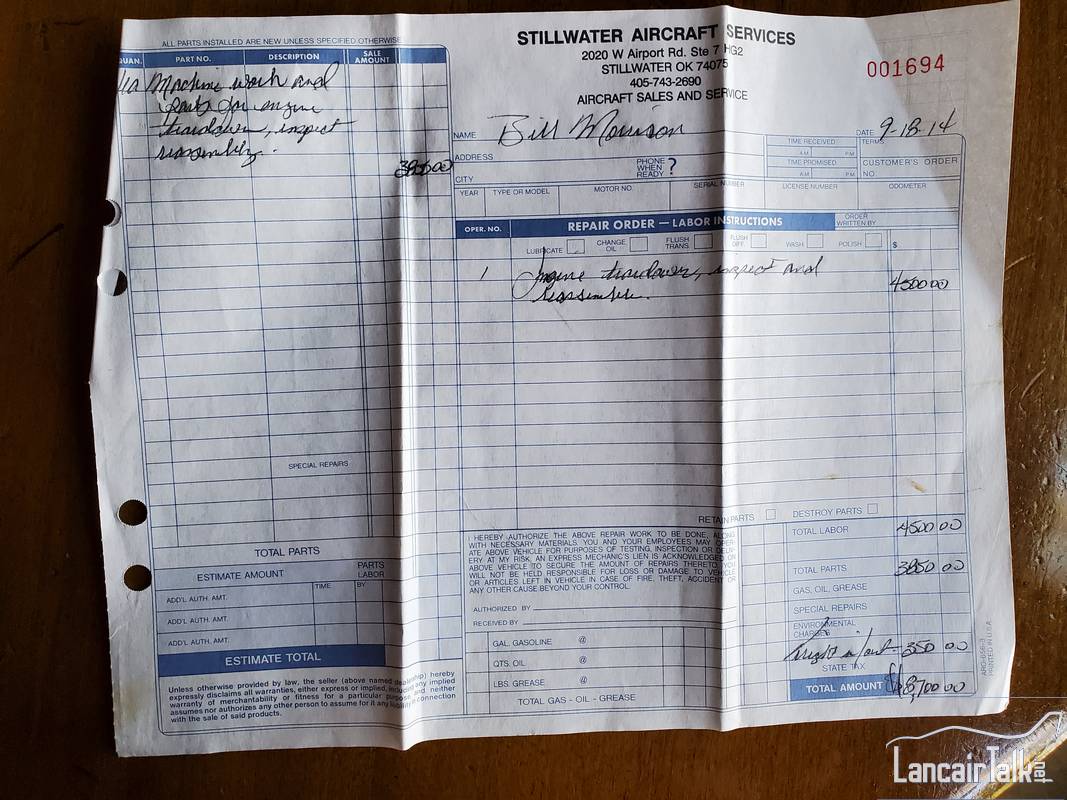 ALL PARTS INSTALLED ARE NEW UNLESS SPECIFIED OTHERWISE
QUAN. PART NO. DESCRIPTION SALE AMOUNT
Machine work and
parts for engine
teardown, inspect
reassembly.
3850 00
SPECIAL REPAIRS
TOTAL PARTS
ESTIMATE AMOUNT PARTS LABOR
TIME BY
ADD'L AUTH. AMT.
ADD'L AUTH. AMT.
ADD'L AUTH. AMT.
ESTIMATE TOTAL
Unless otherwise provided by law, the seller (above named dealership) hereby
expressly disclaims all warranties, either express or implied, including any implied
warranty of merchantability or fitness for a particular purpose and neither
assumes nor authorizes any other person to assume for it any liability in connection
with the sale of said products.
STILLWATER AIRCRAFT SERVICES
2020 W Airport Rd. Ste 7 HG2
STILLWATER OK 74075
405-743-2690
AIRCRAFT SALES AND SERVICE
001694
NAME Bill Morrison
DATE 9-18-14
ADDRESS
CITY
PHONE WHEN READY ?
TIME RECEIVED A.M. P.M.
TIME PROMISED A.M. P.M.
TERMS
CUSTOMER'S ORDER NO.
YEAR TYPE OR MODEL MOTOR NO. SERIAL NUMBER LICENSE NUMBER ODOMETER
OPER. NO. REPAIR ORDER — LABOR INSTRUCTIONS ORDER WRITTEN BY
LUBRICATE CHANGE OIL FLUSH TRANS. FLUSH DIFF. WASH POLISH $
1 Engine teardown, inspect and 4500 00
reassemble.
RETAIN PARTS DESTROY PARTS
I HEREBY AUTHORIZE THE ABOVE REPAIR WORK TO BE DONE, ALONG
WITH NECESSARY MATERIALS. YOU AND YOUR EMPLOYEES MAY OPER-
ATE ABOVE VEHICLE FOR PURPOSES OF TESTING, INSPECTION OR DELIV-
ERY AT MY RISK. AN EXPRESS MECHANIC'S LIEN IS ACKNOWLEDGED ON
ABOVE VEHICLE TO SECURE THE AMOUNT OF REPAIRS THERETO. YOU
WILL NOT BE HELD RESPONSIBLE FOR LOSS OR DAMAGE TO VEHICLE
OR ARTICLES LEFT IN VEHICLE IN CASE OF FIRE, THEFT, ACCIDENT OR
ANY OTHER CAUSE BEYOND YOUR CONTROL.
AUTHORIZED BY
RECEIVED BY
GAL. GASOLINE @
QTS. OIL @
LBS. GREASE @
TOTAL GAS - OIL - GREASE
TOTAL LABOR 4500 00
TOTAL PARTS 3850 00
GAS, OIL, GREASE
SPECIAL REPAIRS
ENVIRONMENTAL CHARGES
freight in/out - 350 00
STATE TAX
TOTAL AMOUNT $8,700 00
PRINTED IN U.S.A.
LancairTalk.net